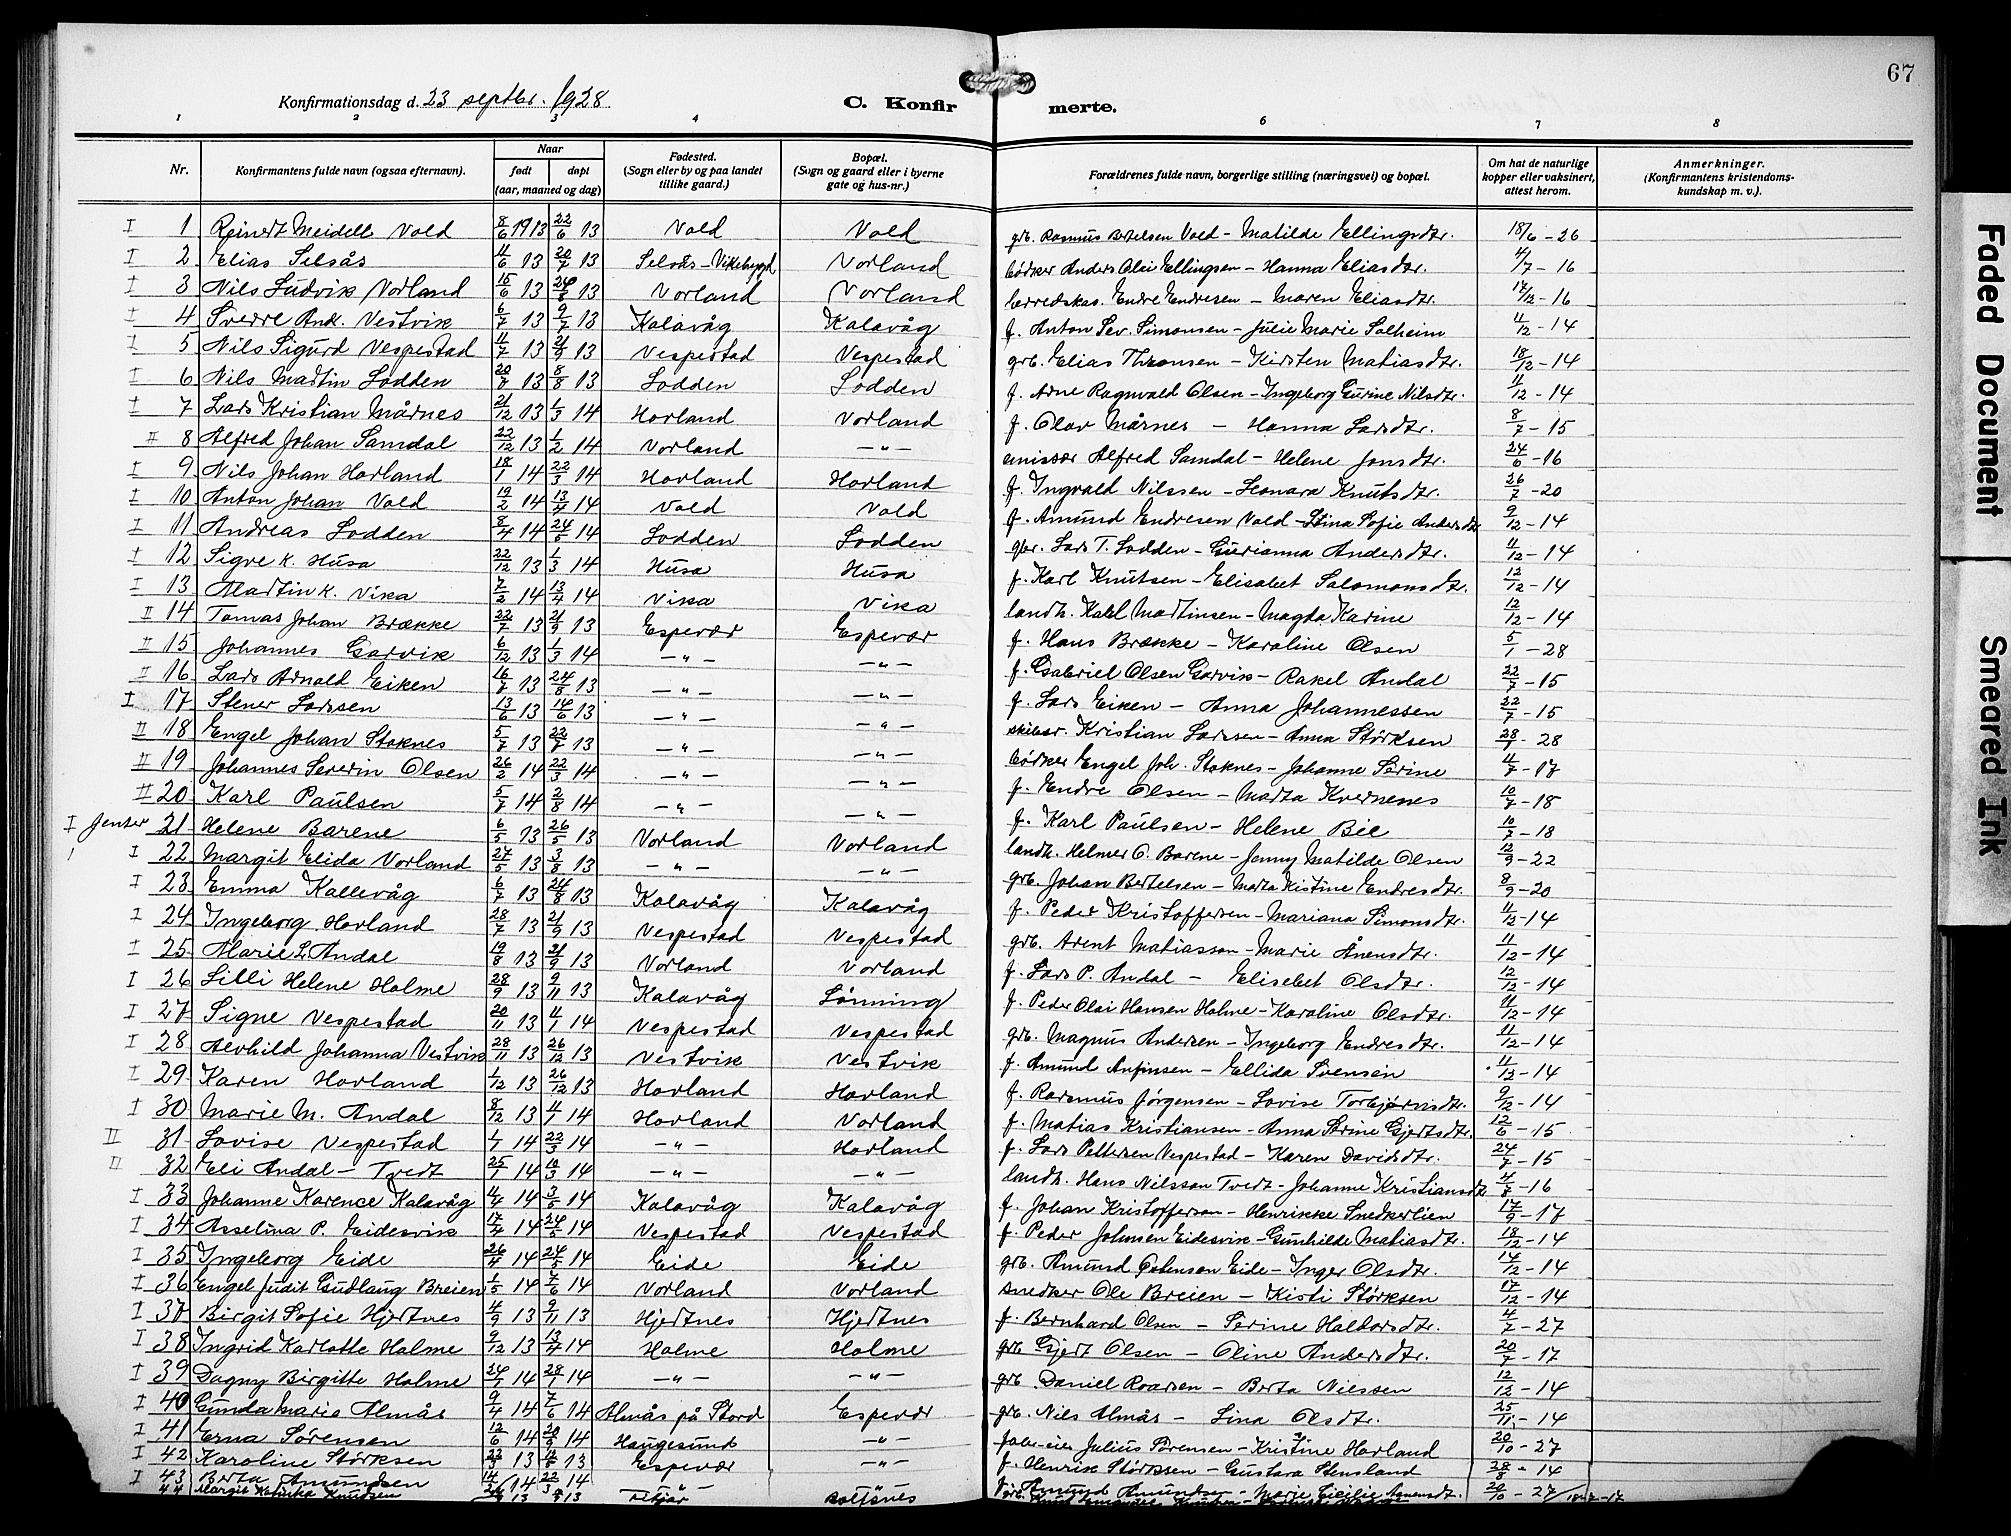 67
Konfirmationsdag d. 23 septbr. 1928.
C. Konfir merte.
1 2 3 4 6 7 8
Nr.
Konfirmantens fulde navn (ogsaa efternavn).
Naar
født døpt
(aar, maaned og dag)
Fødested.
(Sogn eller by og paa landet tillike gaard.)
Bopæl.
(Sogn og gaard eller i byerne gate og hus-nr.)
Forældrenes fulde navn, borgerlige stilling (næringsvei) og bopæl.
Om hat de naturlige kopper eller vaksinert, attest herom.
Anmerkninger.
(Konfirmantens kristendoms-kundskap m. v.).
I 1 Reinert Meidell Vold 8/6 1913 22/6 13 Vold Vold grb. Rasmus Bertelsen Vold - Matilde Ellingsdtr. 18/6 - 26
I 2 Elias Silsås 11/6 13 20/7 13 Silsås - Vikebygd Vorland bødker Anders Olai Ellingsen - Hanna Eliasdtr. 4/7 - 16
I 3 Nils Ludvik Vorland 15/6 13 24/8 13 Vorland Vorland herredskas. Endre Endresen - Maren Eliasdtr. 17/12 - 16
I 4 Sverre Ank. Vestvik 6/7 13 9/7 13 Kalavåg Kalavåg f. Anton Sev. Simonsen - Julie Marie Solheim 11/12 - 14
I 5 Nils Sigurd Vespestad 11/7 13 21/9 13 Vespestad Vespestad grb. Elias Thronsen - Kirsten Matiasdtr. 18/12 - 14
I 6 Nils Martin Lodden 20/7 13 8/8 13 Lodden Lodden f. Arne Ragnvald Olsen - Ingeborg Gurine Nilsdtr. 11/12 - 14
I 7 Lars Kristian Mårnes 21/12 13 1/3 14 Hovland Vorland f. Olav Mårnes - Hanna Larsdtr. 8/7 - 15
II 8 Alfred Johan Samdal 22/12 13 1/2 14 Vorland - " - emissær Alfred Samdal - Helene Jonsdtr. 24/6 - 16
I 9 Nils Johan Hovland 18/1 14 22/3 14 Hovland Hovland f. Ingvald Nilssen - Leonara Knutsdtr. 26/7 - 20
I 10 Anton Johan Vold 19/2 14 13/4 14 Vold Vold f. Amund Endresen Vold - Stina Sofie Andersdtr 9/12 - 14
I 11 Andreas Lodden 8/4 14 24/5 14 Lodden Lodden gbr. Lars T. Lodden - Gurianna Andersdtr. 11/12 - 14
I 12 Sigve K. Husa 22/12 13 1/3 14 Husa Husa f. Karl Knutsen - Elisabet Salomonsdtr. 12/12 - 14
I 13 Martin K. Vika 7/2 14 13/4 14 Vika Vika landh. Karl Martinsen - Magda Karine 12/12 - 14
II 14 Tomas Johan Brække 22/7 13 21/9 13 Espevær Espevær f. Hans Brække - Karoline Olsen 5/1 - 28
II 15 Johannes Garvik 6/12 13 1/3 14 - " - - " - f. Gabriel Olsen Garvik - Rakel Andal 22/7 - 15
II 16 Lars Arnald Eiken 16/7 13 24/8 13 - " - - " - f. Lars Eiken - Anna Johannessen 22/7 - 15
I 17 Stener Larssen 13/6 13 14/6 13 - " - - " - skibsr. Kristian Larssen - Anna Størksen 28/1 - 28
II 18 Engel Johan Stoknes 5/7 13 22/7 13 - " - - " - bødker Engel Joh. Stoknes - Johanne Serine 11/7 - 17
II 19 Johannes Severin Olsen 26/2 14 22/3 14 - " - - " - f. Endre Olsen - Marta Kvernenes 10/7 - 18
II 20 Karl Paulsen 5/7 14 2/8 14 - " - - " - f. Karl Paulsen - Helene Bie 10/7 - 18
I Jenter 21 Helene Barene 6/5 13 26/5 13 Vorland Vorland landh. Helmer O. Barene - Jenny Matilde Olsen 12/9 - 22
I 22 Margit Elida Vorland 27/5 13 3/8 13 - " - - " - grb. Johan Bertelsen - Marta Kistine Endresdtr. 8/9 - 20
I 23 Emma Kallevåg 6/7 13 24/8 13 Kalavåg Kalavåg f. Peder Kristoffersen - Mariana Simonsdtr. 11/12 - 14
I 24 Ingeborg Hovland 28/7 13 21/9 13 Vespestad Vespestad grb. Arent Matiasson - Marie Ånensdtr. 11/12 - 14
I 25 Marie L. Andal 19/8 13 21/9 13 Vorland Vorland f. Lars P. Andal - Elisebet Olsdtr. 12/12 - 14
I 26 Lilli Helene Holme 28/9 13 9/11 13 Kalavåg Lønning f. Peder Olai Hansen Holme - Karoline Olsdtr. 11/12 - 14
I 27 Signe Vespestad 20/11 13 4/1 14 Vespestad Vespestad grb. Magnus Andersen - Ingeborg Endresdtr. 11/12 - 14
I 28 Alvhild Johanna Vestvik 28/11 13 26/12 13 Vestvik Vestvik f. Amund Anfinsen - Ellida Svensen 11/12 - 14
I 29 Karen Hovland 1/12 13 26/12 13 Hovland Hovland f. Rasmus Jørgensen - Lovise Torbjørnsdtr. 9/12 - 14
I 30 Marie M. Andal 8/12 13 4/1 14 Hovland Vorland f. Matias Kristiansen - Anna Serine Gjertsdtr. 12/6 - 15
II 31 Lovise Vespestad 1/1 14 22/3 14 - " - Hovland f. Lars Pettersen Vespestad - Karen Davidsdtr. 24/7 - 15
II 32 Eli Andal - Tvedt 25/1 14 10/3 14 - " - - " - landh. Hans Nilsson Tvedt - Johanne Kristiansdtr 4/8 - 16
I 33 Johanne Karence Kalavåg 4/4 14 3/5 14 Kalavåg Kalavåg f. Johan Kristofferson - Henrikke Snedkerlien 17/9 - 17
I 34 Asselina P. Eidesvik 17/4 14 24/5 14 Vespestad Vespestad f. Peder Johnsen Eidesvik - Gunhilde Matiasdtr. 18/12 - 14
I 35 Ingeborg Eide 26/4 14 24/5 14 Eide Eide grb. Amund Østenson Eide - Inger Olsdtr. 14/12 - 14
I 36 Engel Judit Gudlaug Breien 1/5 14 7/6 14 Vorland Vorland snedker Ole Breien - Kisti Størksen 17/12 - 14
I 37 Birgit Sofie Hjertnes 4/9 13 9/11 13 Hjertnes Hjertnes f. Bernhard Olsen - Serine Haldorsdtr. 4/7 - 27
I 38 Ingrid Karlotte Holme 9/12 13 13/4 14 Holme Holme grb Gjert Olsen - Oline Andersdtr. 20/7 - 17
I 39 Dagny Birgitte Holme 24/7 14 28/1 14 - " - - " - grb. Daniel Roarsen - Berta Nilssen 12/12 - 14
I 40 Gunda Marie Almås 9/4 14 7/6 14 Almås på Stord Espevær grb. Nils Almås - Lina Olsdtr. 25/11 - 14
I 41 Erna Sørensen 12/6 14 20/9 14 Haugesund - " - fabr-eier Julius Sørensen - Kristine Hovland 20/10 - 27
I 42 Karoline Størksen 22/3 13 12/5 13 Espevær - " - f. Henrik Størksen - Gustava Stensland 28/8 - 14
I 43 Berta Amundsen 14/2 14 22/3 14 - " - f. Amund Amundsen - Marie Cicilie Aanensdt. 20/10 - 27
44 Margit Knudsen 13 13